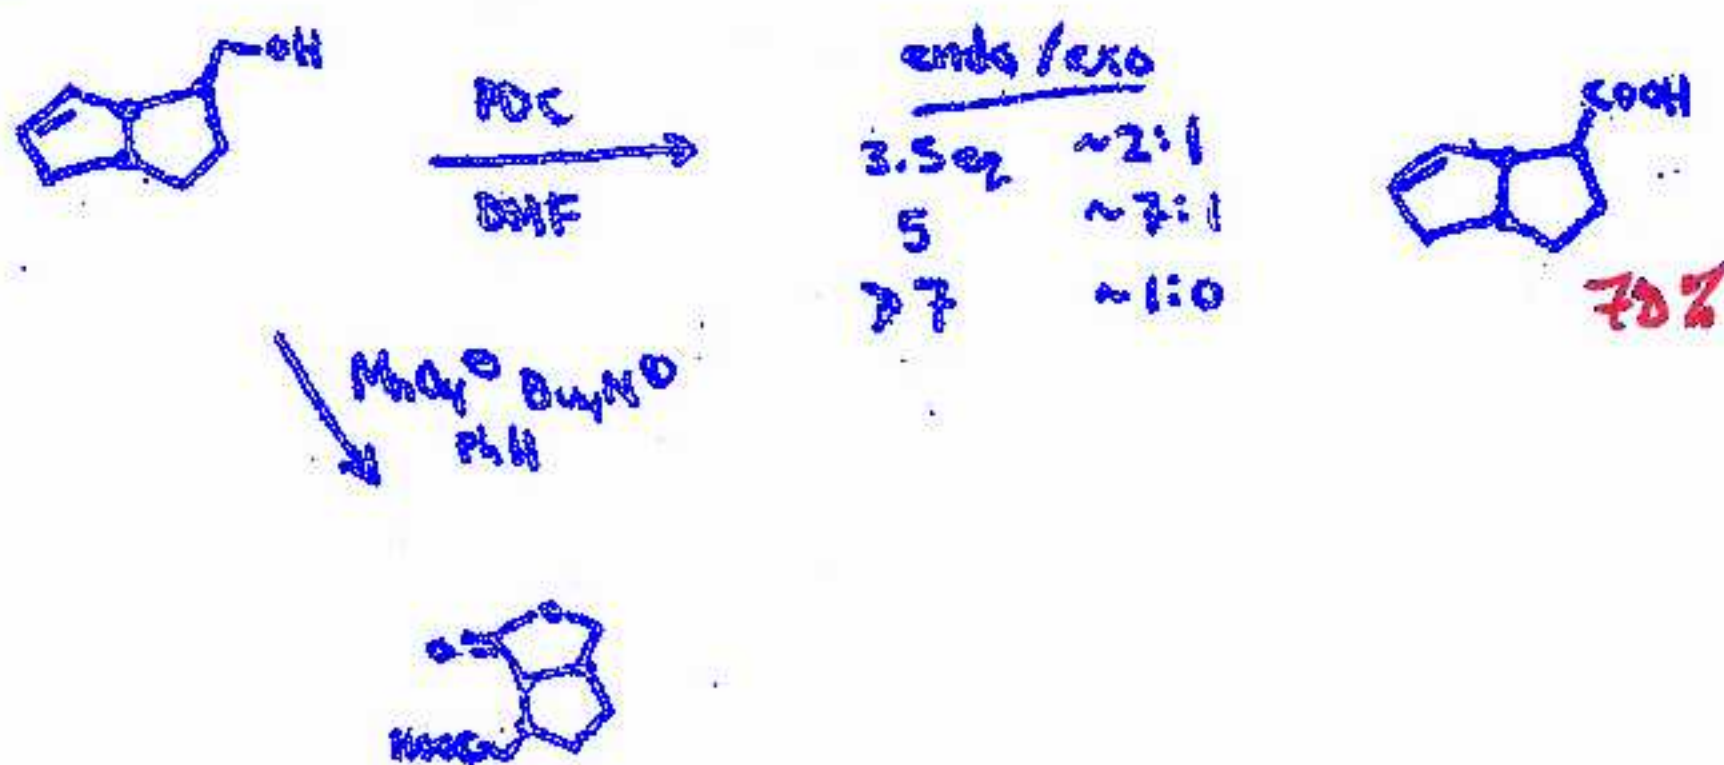 OH
PDC
DMF
endo/exo
3.5eq ~2:1
5 ~7:1
>7 ~1:0
COOH
70%
MnO4⊖ Bu4N⊕
PhH
O
O=
HOOC